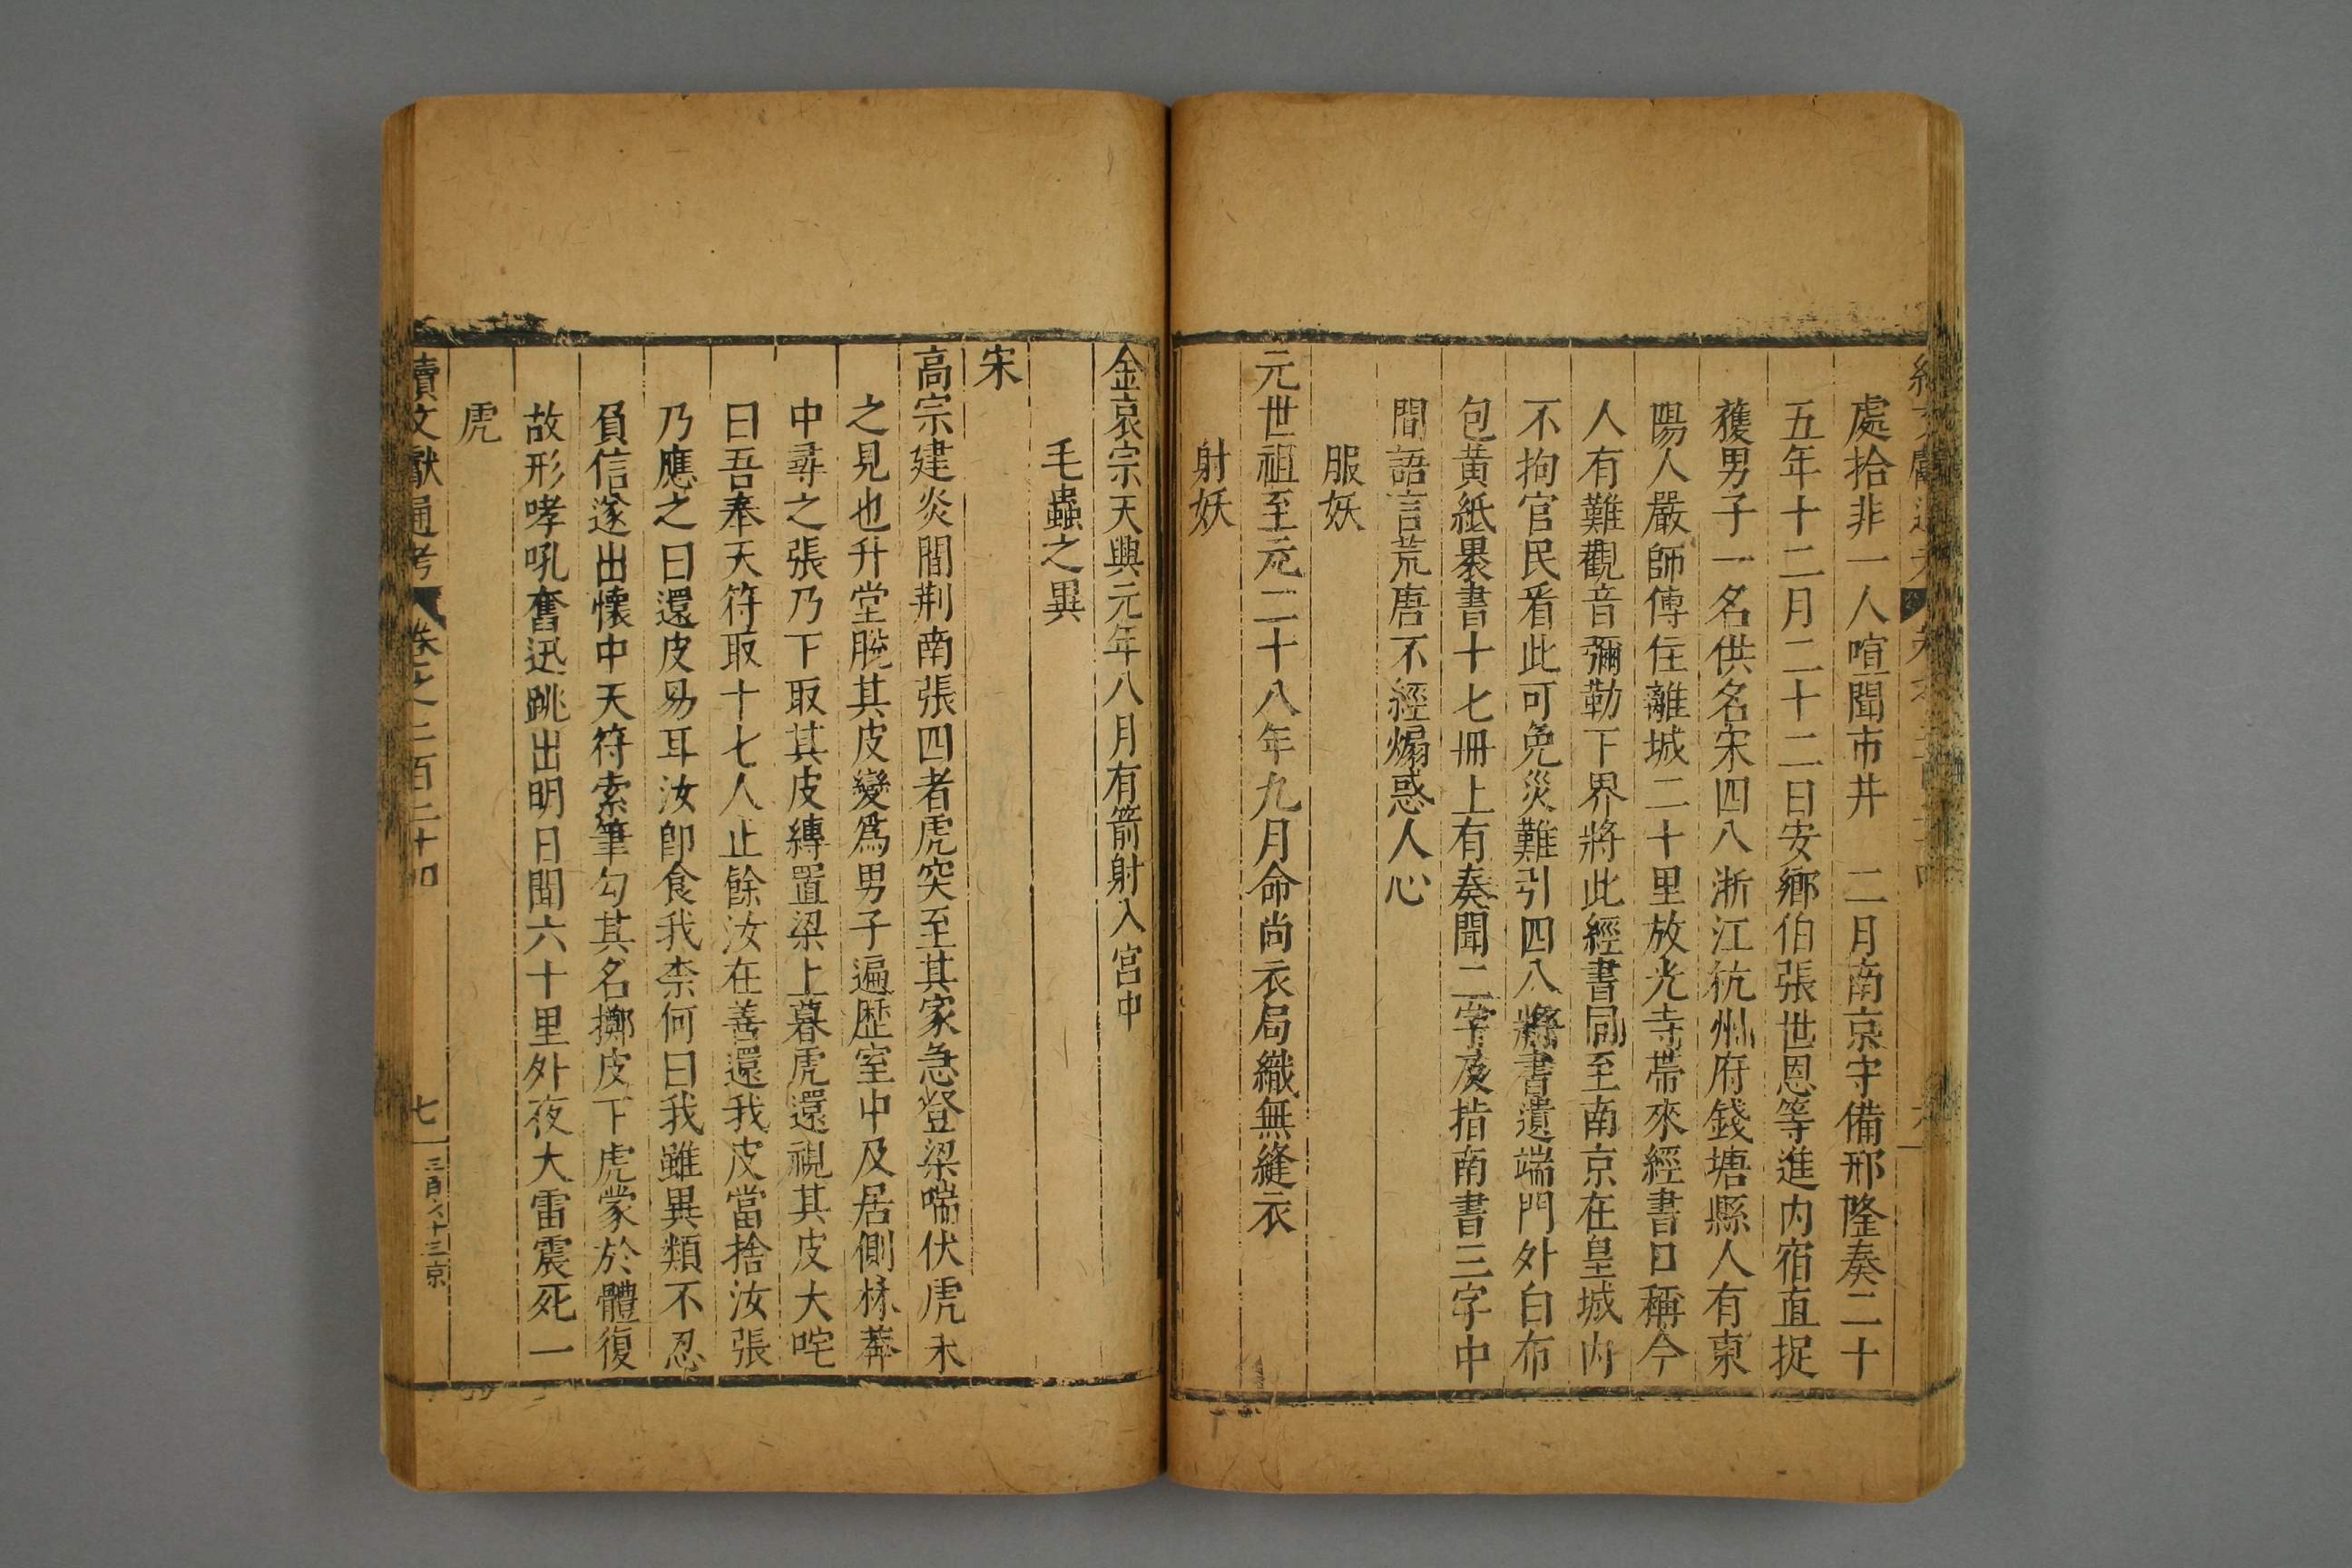 處拾非一人喧聞市井　二月南京守備邢隆奏二十
五年十二月二十二日安鄉伯張世恩等進内宿直捉
獲男子一名供名宋四八浙江杭州府錢塘縣人有東
陽人嚴師傅住離城二十里放光寺帶來經書口稱今
人有難觀音彌勒下界將此經書同至南京在皇城内
不拘官民看此可免災難引四八將書遺端門外白布
包黃紙褁書十七冊上有奏聞二字及指南書三字中
間語言荒唐不經煽惑人心
服妖
元世祖至元二十八年九月命尚衣局織無縫衣
射妖
金哀宗天興元年八月有箭射入宮中
毛蟲之異
宋
高宗建炎間荆南張四者虎突至其家急登梁喘伏虎未
之見也升堂脫其皮變爲男子遍歷室中及居側林莽
中尋之張乃下取其皮縛置梁上暮虎還視其皮大咤
曰吾奉天符取十七人止餘汝在善還我皮當捨汝張
乃應之曰還皮易耳汝卽食我柰何曰我雖異類不忍
負信遂出懷中天符索筆勾其名擲皮下虎蒙於體復
故形哮吼奮迅跳出明日聞六十里外夜大雷震死一
虎
續文獻通考　卷之二百二十四　七　三百六十三京